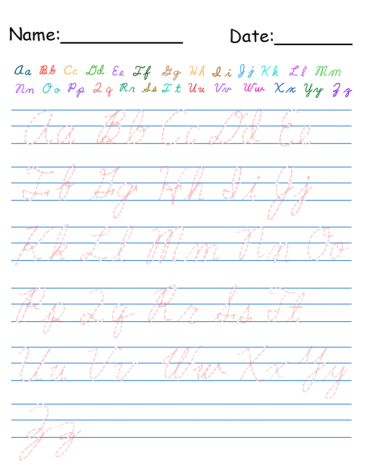 Name:____________ Date:________
Aa Bb Cc Dd Ee Ff Gg Hh Ii Jj Kk Ll Mm
Nn Oo Pp Qq Rr Ss Tt Uu Vv Ww Xx Yy Zz
Aa Bb Cc Dd Ee
Ff Gg Hh Ii Jj
Kk Ll Mm Nn Oo
Pp Qq Rr Ss Tt
Uu Vv Ww Xx Yy
Zz